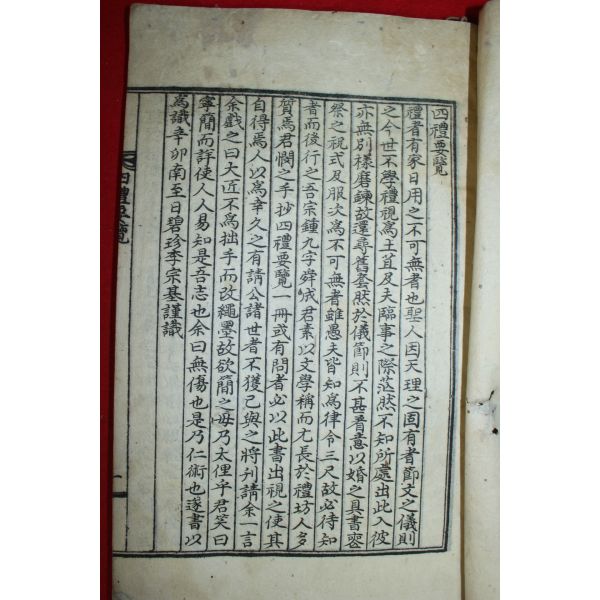 四禮要覽
禮者有家日用之不可無者也聖人因天理之固有者節文之儀則
之今世不學禮視爲土苴及夫臨事之際茫然不知所處出此入彼
亦無別樣磨鍊故謹尋舊套然於儀節則不甚着意以婚之具書窓
祭之祝式及服次爲不可無者雖愚夫皆知爲律令三尺故必待知
者而後行之吾宗鍾九字舜成君素以文學稱而尤長於禮坊人多
質焉君憫之手抄四禮要覽一冊或有問者必以此書出視之使其
自得焉人以爲幸久之有請公諸世者不獲已與之將刊請余一言
余戱之曰大匠不爲拙手而改繩墨故欲簡之毋乃太俚乎君笑曰
寧簡而詳使人人易知是吾志也余曰無傷也是乃仁術也遂書以
爲識辛卯南至日碧珍李宗基謹識
四禮要覽
一